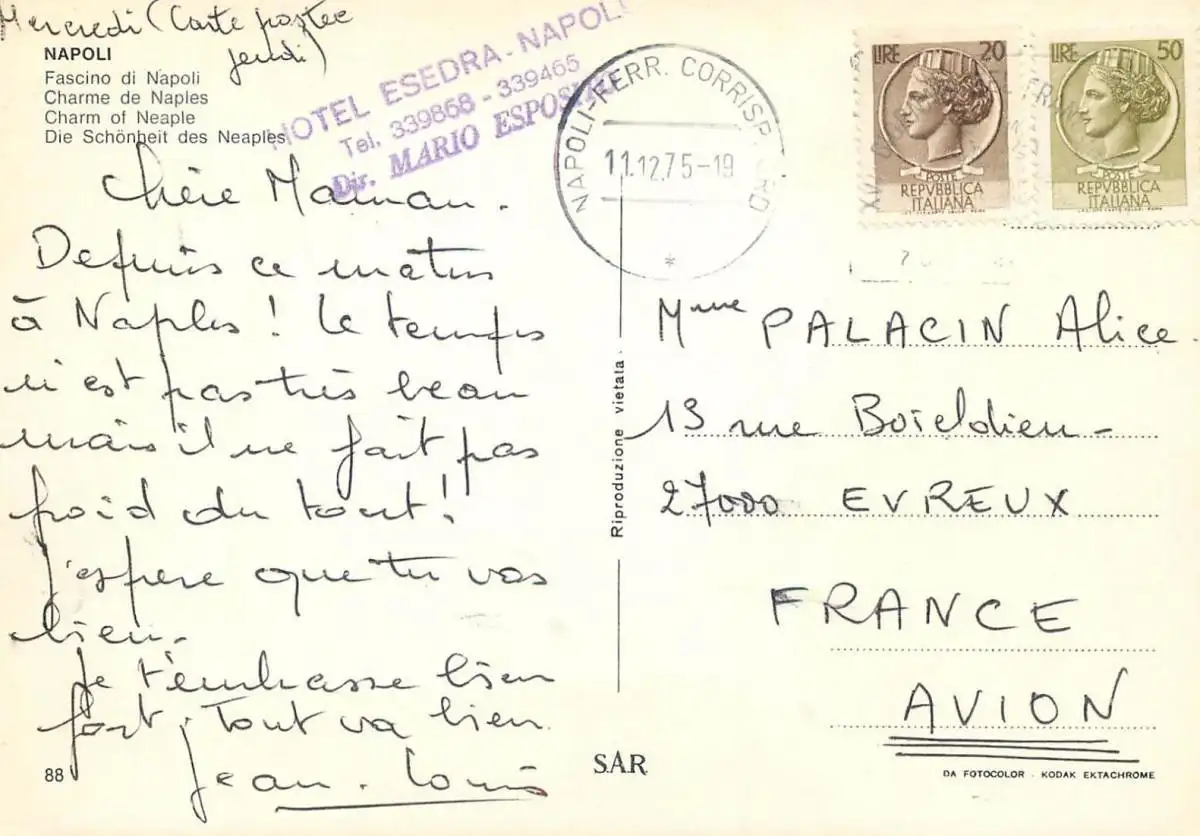 Mercredi (Carte postée
jeudi)
NAPOLI
Fascino di Napoli
Charme de Naples
Charm of Neaple
Die Schönheit des Neaples
HOTEL ESEDRA - NAPOLI
Tel. 339868 - 339465
Dir. MARIO ESPOSITO
NAPOLI-FERR. CORRISP. ORD
11.12.75-19
LIRE 20
POSTE
REPVBBLICA
ITALIANA
LIRE 50
POSTE
REPVBBLICA
ITALIANA
Chère Maman.
Depuis ce matin
à Naples ! Le temps
n'est pas très beau
mais il ne fait pas
froid du tout !
J'espère que tu vas
bien.
Je t'embrasse bien
fort. Tout va bien
Jean-Louis
88
Riproduzione vietata
S.A.R.
Mme PALACIN Alice.
13 rue Boieldieu -
27000 EVREUX
FRANCE
AVION
DA FOTOCOLOR - KODAK EKTACHROME